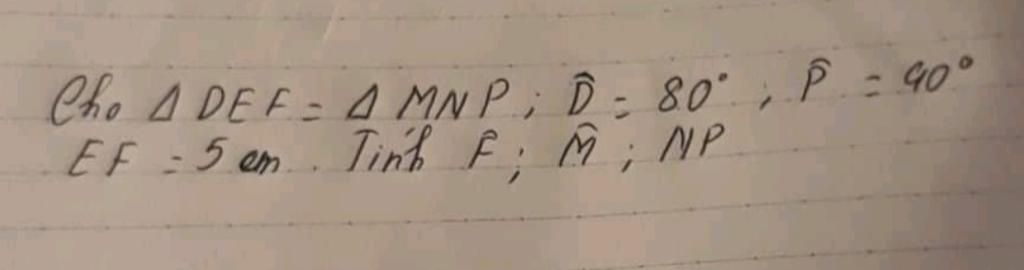 Cho Δ DEF = Δ MNP ; D̂ = 80° , P̂ = 40°
EF = 5 cm . Tính F̂ ; M̂ ; NP